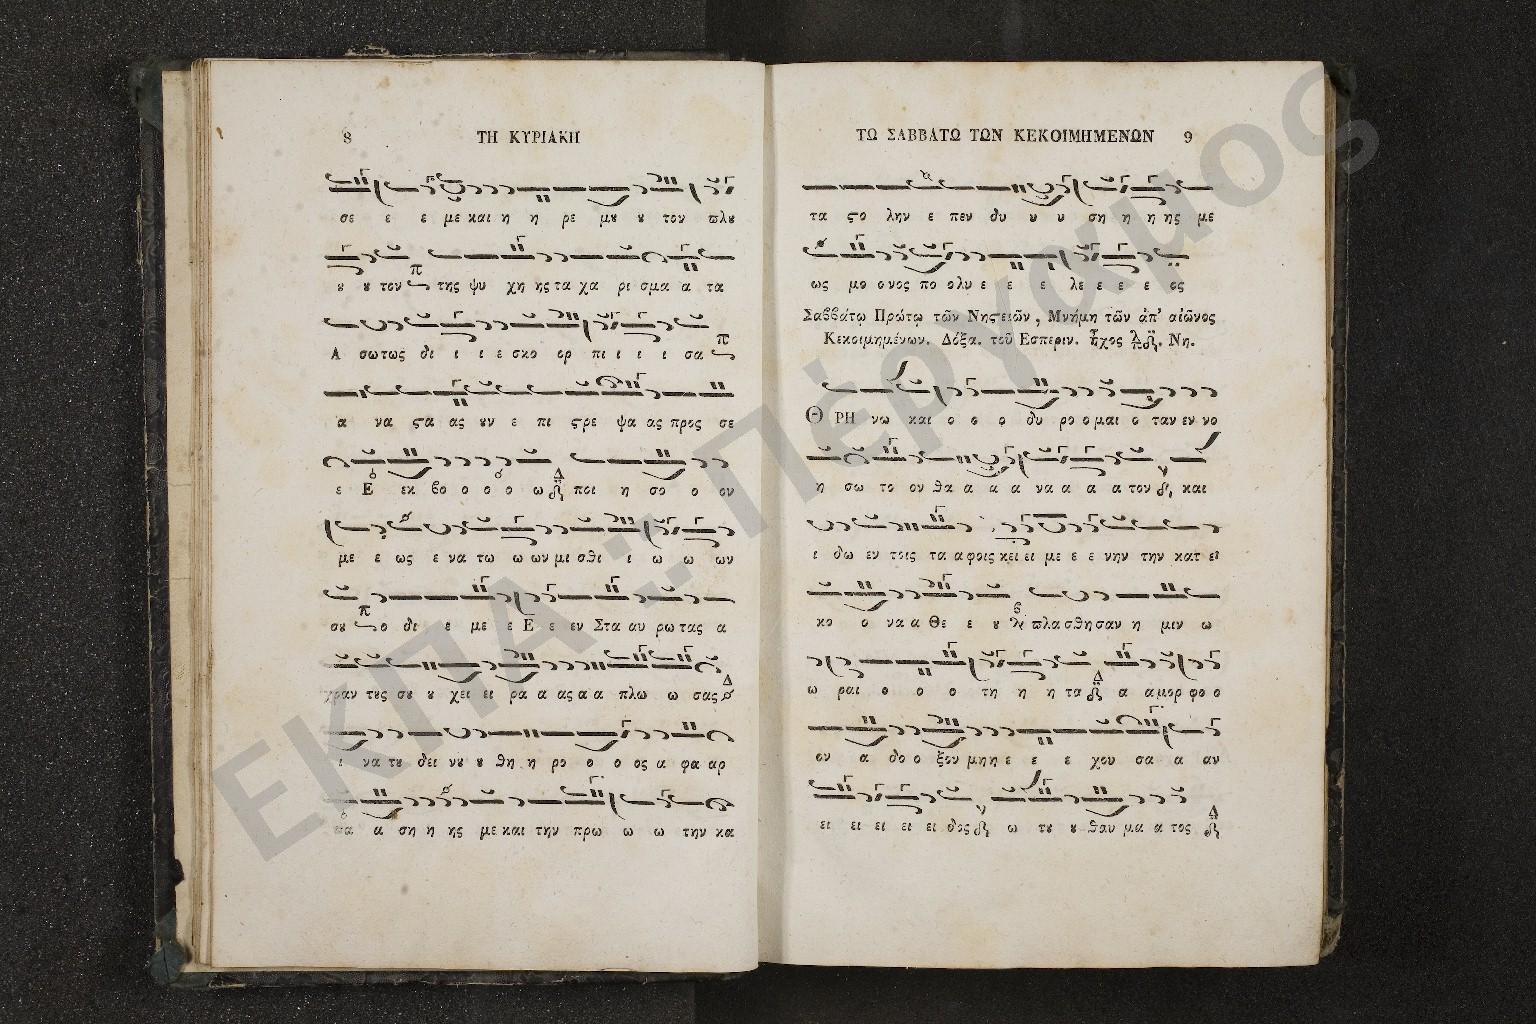 8 ΤΗ ΚΥΡΙΑΚΗ
σε ε ε με και η η ρε μȣ ȣ τον πλȣ
ȣ ȣ τον της ψυ χη ης τα χα ρι σμα α τα
Α σωτως δι ι ι ε σκο ορ πι ι ι ι σα
α να ϛα ας ȣν ε πι ϛρε ψα ας προς σε
ε Ε εκ βο ο ο ο ω ποι η σο ο ον
με ε ως ε να τω ω ων μι σθι ι ω ω ων
σȣ ο δι ε με ε Ε ε εν Στα αυ ρω τας α
χραν τȣς σȣ ȣ χει ει ρα α ας α α πλω ω σας
ι να τȣ δει νȣ ȣ θη η ρο ο ο ος α φα αρ
πα α ση η ης με και την πρω ω ω την κα
ΤΩ ΣΑΒΒΑΤΩ ΤΩΝ ΚΕΚΟΙΜΗΜΕΝΩΝ 9
τα ϛο λην ε πεν δυ υ υ ση η η ης με
ως μο ονος πο ολυ ε ε ε λε ε ε ε ος
Σαββάτῳ Πρώτῳ τῶν Νηϛειῶν, Μνήμη τῶν ἀπ' αἰῶνος
Κεκοιμημένων. Δόξα. τοῦ Εσπεριν. ἦχος Νη.
ΘΡΗ νω και ο ο ο δυ ρο ο μαι ο ταν εν νο
η σω το ον θα α α α να α α α τον και
ι δω εν τοις τα α φοις κει ει με ε ε νην την κατ ει
κο ο να α Θε ε ȣ πλα σθησαν η μιν ω
ω ραι ο ο ο τη η η τα α αμορ φο ο
ον α δο ο ξον μη η ε ε ε χου σα α αν
ει ει ει ει ει δος ω τȣ ȣ θαυ μα α τος
ΕΚΠΑ :: Πέργαμος